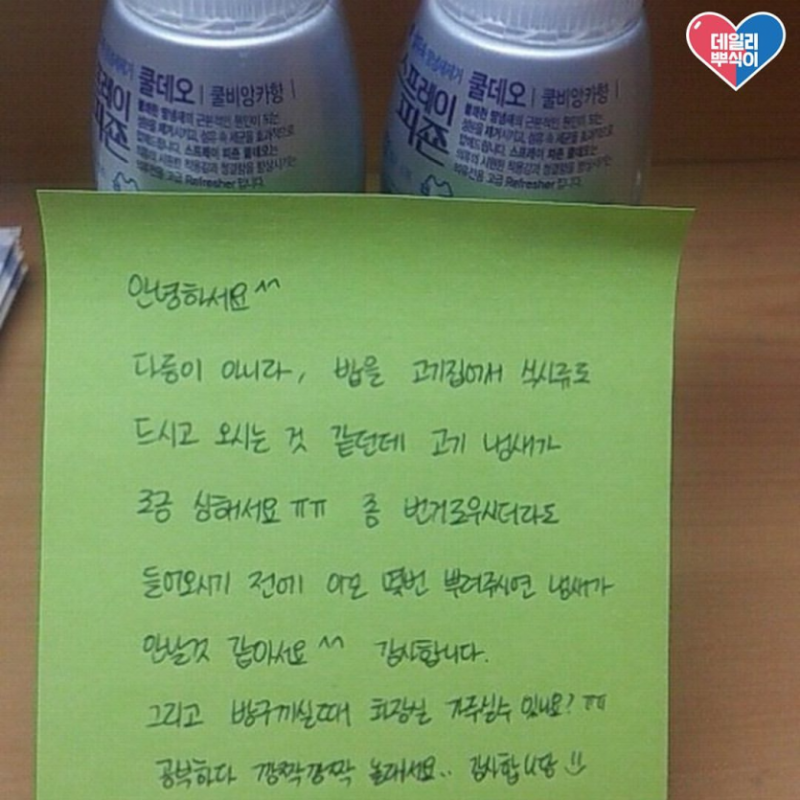 데일리
뿌식이
쿨데오 | 쿨비앙카향 |
쿨데오 | 쿨비앙카향 |
스프레이
피죤
안녕하서요^^
다름이 아니라, 밥을 고기집에서 식사류로
드시고 오시는 것 같던데 고기 냄새가
조금 심해서요 ㅠㅠ 좀 번거로우시더라도
들어오시기 전에 이로 몇번 뿌려주시면 냄새가
안날것 같아서요^^ 감사합니다.
그리고 방구끼실때 화장실 가주실수 있나요? ㅠ
공부하다 깜짝깜짝 놀래서요.. 감사합니당